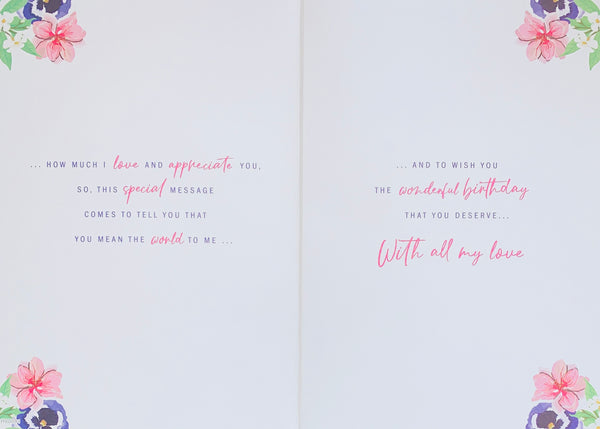 ... HOW MUCH I love AND appreciate YOU,
SO, THIS special MESSAGE
COMES TO TELL YOU THAT
YOU MEAN THE world TO ME ...
... AND TO WISH YOU
THE wonderful birthday
THAT YOU DESERVE...
With all my love